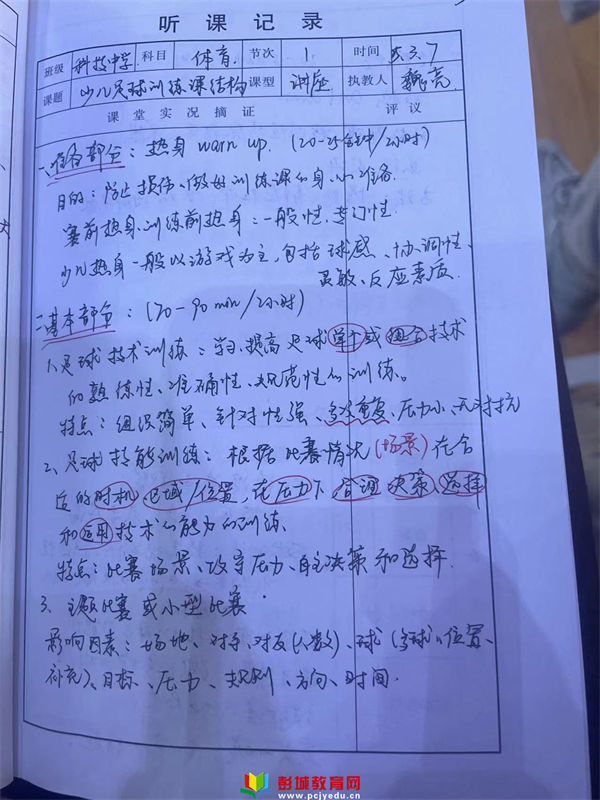 听课记录
班级 科技中学 科目 体育 节次 1 时间 5.3.7
课题 少儿足球训练课结构 课型 讲座 执教人 魏亮
课堂实况摘证 评议
一、准备部分：热身 warn up. (20-25分钟/2小时)
目的：防止损伤、做好训练课的身、心准备.
赛前热身、训练前热身：一般性、专门性.
少儿热身一般以游戏为主，包括球感、协调性、
灵敏、反应素质.
二、基本部分：(70-90min/2小时)
1、足球技术训练：学习、提高足球单个或组合技术
的熟练性、准确性、规范性的训练。
特点：组织简单、针对性强、多次重复、压力小、无对抗
2、足球技能训练：根据比赛情况(场景)在合
适的时机 区域/位置，在压力下 合理 决策 选择
和运用技术的能力的训练、
特点：比赛场景、攻守压力、自主决策和选择.
3、主题比赛或小型比赛.
影响因素：场地、对手、对友(人数)、球(多球、位置、
补充)、目标、压力、规则、方向、时间.
彭城教育网
www.pcjyedu.cn